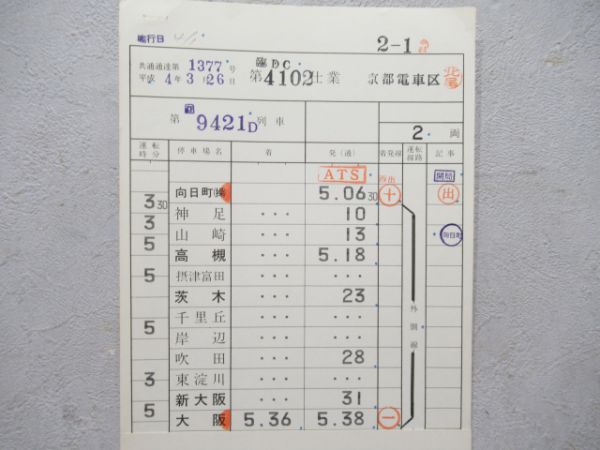 施行日 4/1
2-1
共通通達第 1377 号
平成 4年 3月 26日
臨 DC
第 4102 仕業 京都電車区
第 9421D 列車
2 両
運転時分 停車場名 着 発(通) 着発線 運転線路 記事
ATS 開局
向日町 5.06 30 出
3 30
神足 ・・・ 10
3
山崎 ・・・ 13 向日町
5
高槻 ・・・ 5.18
摂津富田 ・・・ ・・・
5
茨木 ・・・ 23
千里丘 ・・・ ・・・
外側線
5
岸辺 ・・・ ・・・
吹田 ・・・ 28
東淀川 ・・・ ・・・
3
新大阪 ・・・ 31
5
大阪 5.36 5.38 一